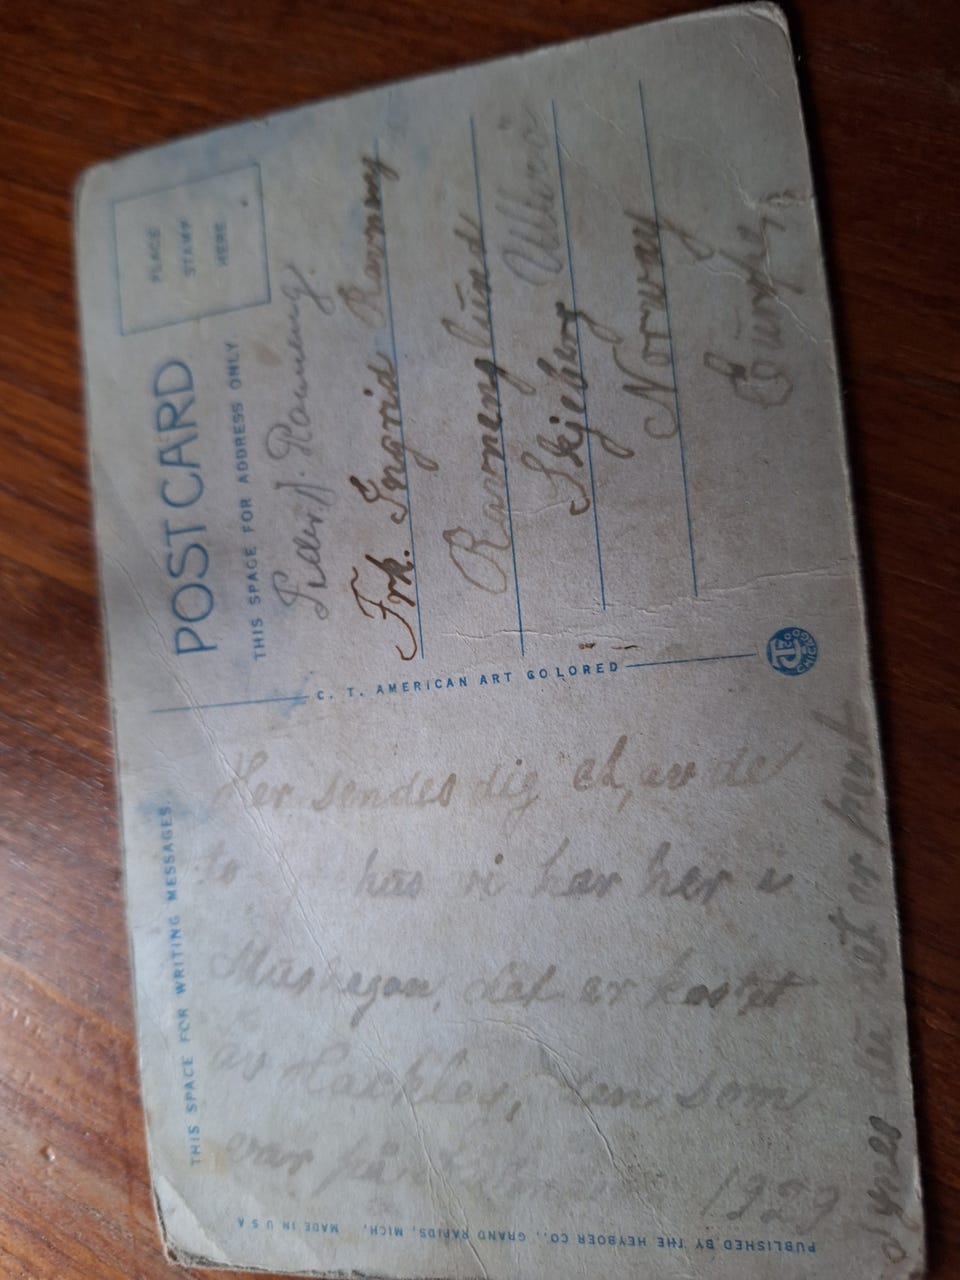 THIS SPACE FOR WRITING MESSAGES
Her sendes dig et, av de
to hus vi har her i
Muskegon, det er kostet
av Hackley, den som
var på 1929
synes du det er pent
PUBLISHED BY THE HEYBOER CO., GRAND RAPIDS, MICH. MADE IN U S A
C. T. AMERICAN ART COLORED
CHICAGO
POST CARD
PLACE
STAMP
HERE
THIS SPACE FOR ADDRESS ONLY
Frk. Ingrid Ramney
Ravneng lund
Skjeberg Ullerö
Norway
Europe